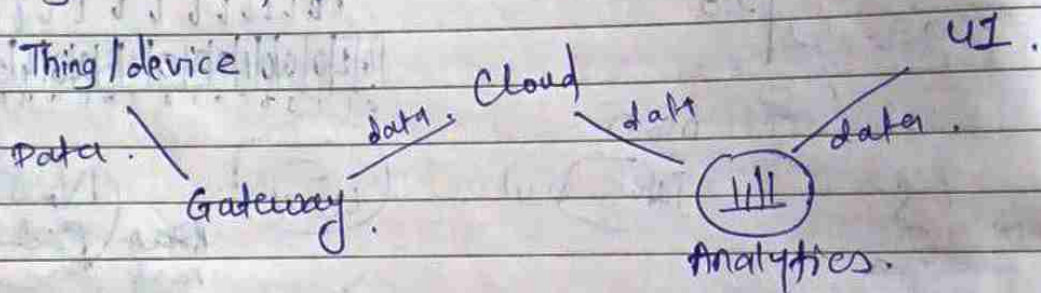 Thing / device
UI.
Cloud
Data.
data.
data
data.
Gateway.
Analytics.